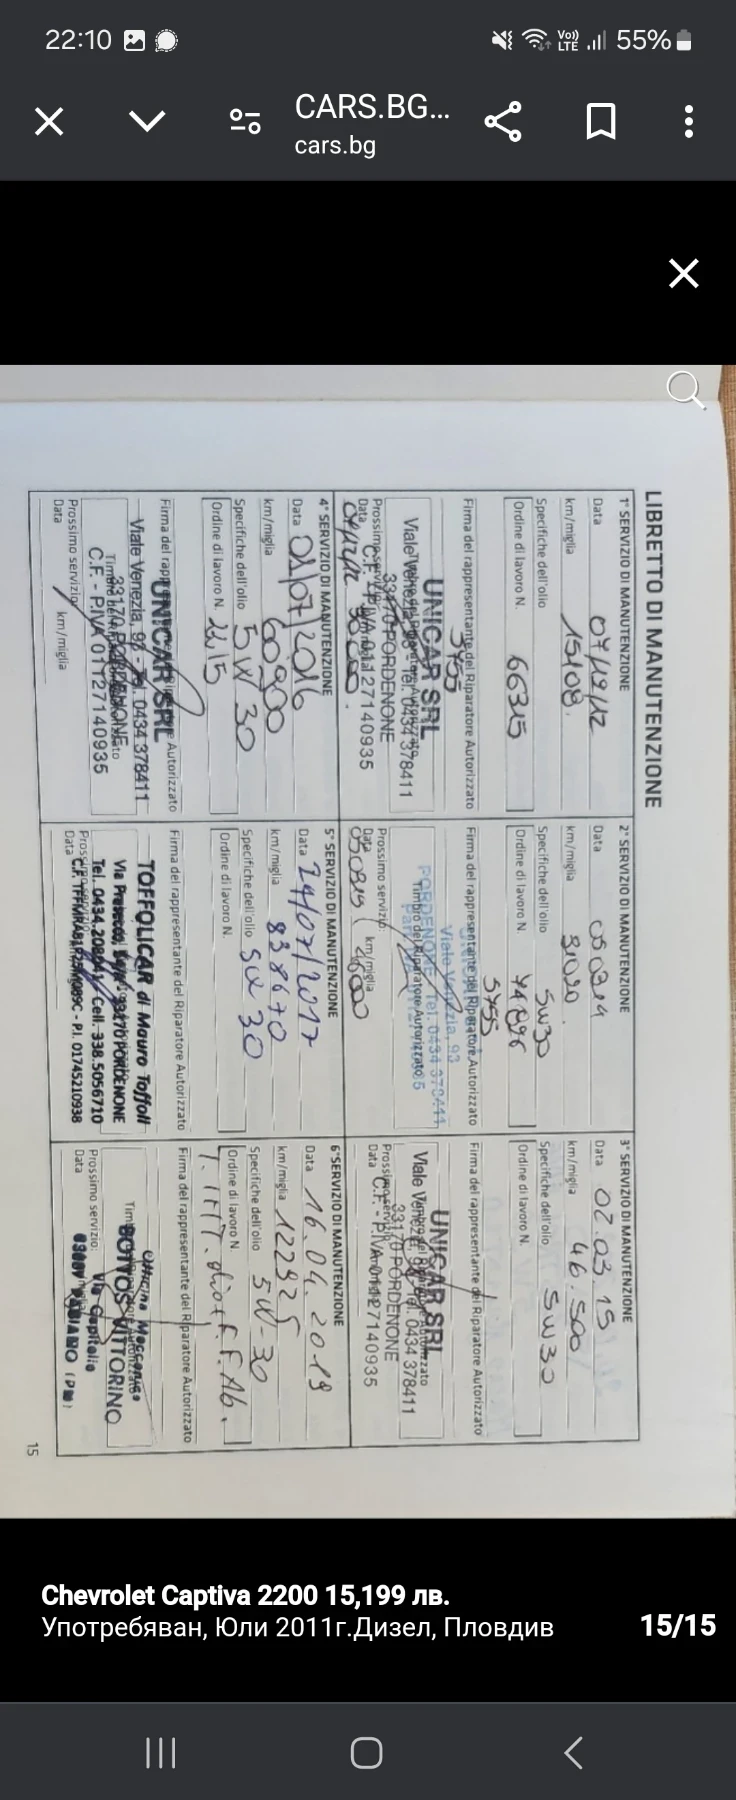 22:10
Vo))
LTE
55%
CARS.BG...
cars.bg
LIBRETTO DI MANUTENZIONE
1° SERVIZIO DI MANUTENZIONE
Data 07/12/12
km/miglia 15108.
Specifiche dell'olio
Ordine di lavoro N. 66315
Firma del rappresentante del Riparatore Autorizzato
5755
UNICAR SRL
Viale Venezia, 93 - Tel. 0434 378411
33170 PORDENONE
C.F. - P.IVA 01127140935
Prossimo servizio:
Data
km/miglia 30000.
2° SERVIZIO DI MANUTENZIONE
Data 050314
km/miglia 31020.
Specifiche dell'olio 5W30
Ordine di lavoro N.
5755
Firma del rappresentante del Riparatore Autorizzato
Viale Venezia, 93
PORDENONE Tel. 0434 378411
Timbro del Riparatore Autorizzato
Prossimo servizio:
Data 050315
km/miglia
3° SERVIZIO DI MANUTENZIONE
Data 02.03.15
km/miglia 46.500
Specifiche dell'olio 5W30
Ordine di lavoro N.
Firma del rappresentante del Riparatore Autorizzato
UNICAR SRL
Viale Venezia, 93 - Tel. 0434 378411
33170 PORDENONE
C.F. - P.IVA 01127140935
Prossimo servizio:
Data
4° SERVIZIO DI MANUTENZIONE
Data 01/07/2016
km/miglia 60900
Specifiche dell'olio 5W30
Ordine di lavoro N.
Firma del rappresentante del Riparatore Autorizzato
UNICAR SRL
Viale Venezia, 93 - Tel. 0434 378411
33170 PORDENONE
C.F. - P.IVA 01127140935
Prossimo servizio:
Data
km/miglia
5° SERVIZIO DI MANUTENZIONE
Data 24/07/2017
km/miglia 838670
Specifiche dell'olio 5W30
Ordine di lavoro N.
Firma del rappresentante del Riparatore Autorizzato
TOFFOLICAR di Mauro Toffoli
33170 PORDENONE
Tel. 0434.208241 Cell. 338.5056710
P.I. 01745210938
Prossimo servizio:
Data
6° SERVIZIO DI MANUTENZIONE
Data 16.04.2019
km/miglia 122925
Specifiche dell'olio 5W-30
Ordine di lavoro N.
Firma del rappresentante del Riparatore Autorizzato
Officina Meccanica
BOTTOS VITTORINO
Via Capitello
Prossimo servizio:
Data
15
Chevrolet Captiva 2200 15,199 лв.
Употребяван, Юли 2011г.Дизел, Пловдив
15/15